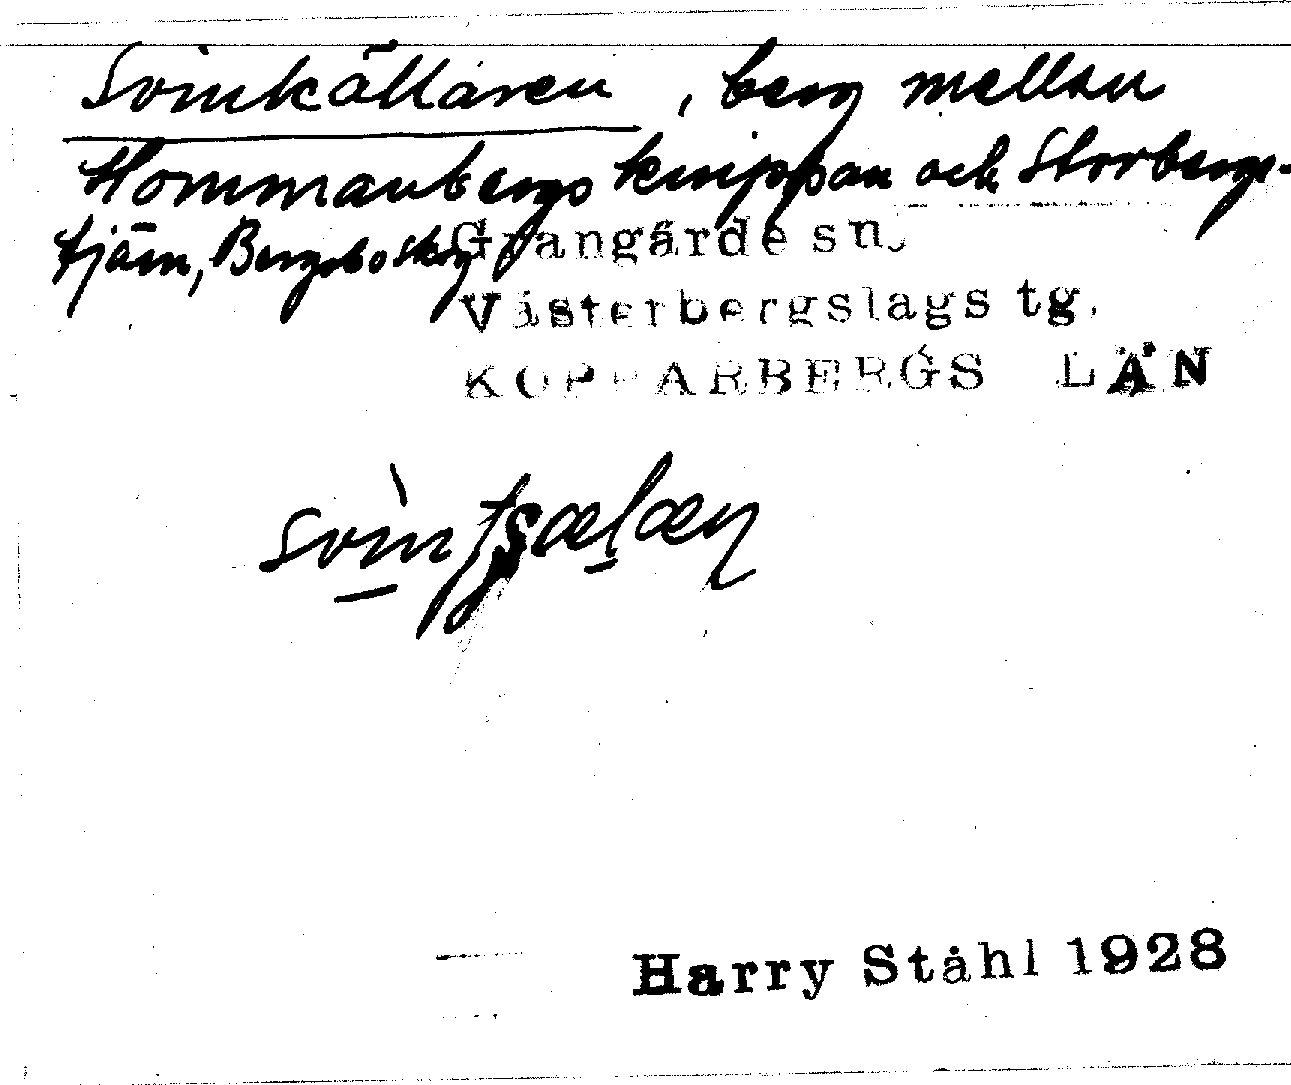 Svinkällaren, berg mellan
Hommanbergs knippan och Storbergs-
tjärn, Bergsboskog
Grangärde sn.
Västerbergslags tg.
KOPPARBERGS LÄN
Harry Ståhl 1928